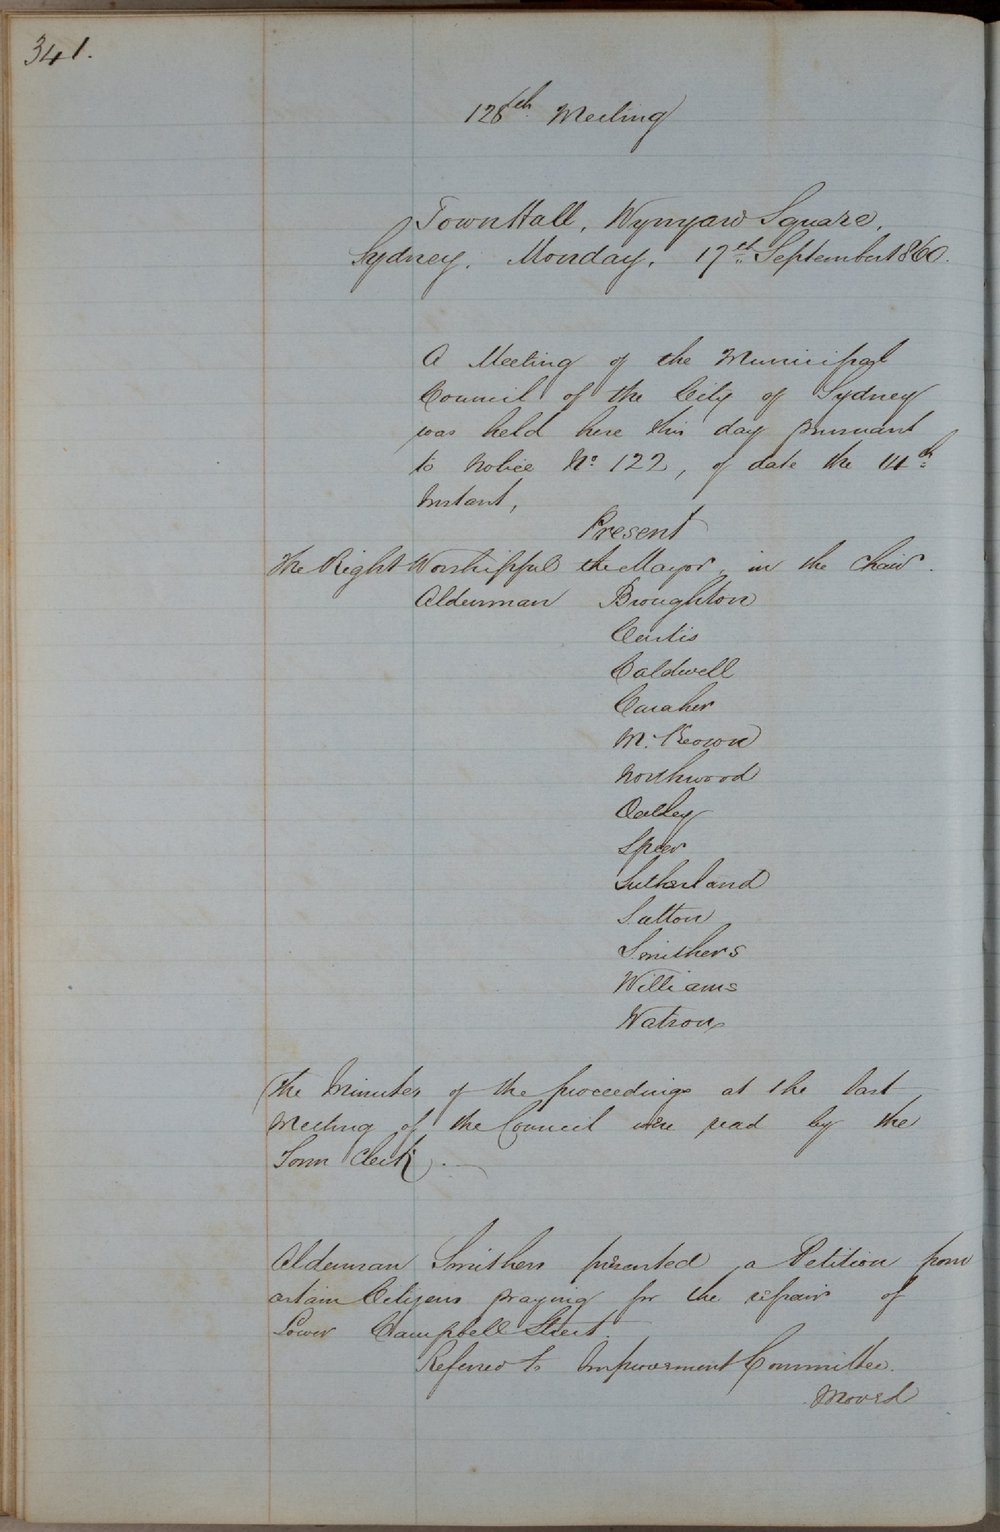 341.
128th Meeting
Town Hall, Wynyard Square,
Sydney, Monday, 17th September 1860.
A Meeting of the Municipal
Council of the City of Sydney
was held here this day pursuant
to Notice No. 122, of date the 14th
Instant,
Present
The Right Worshipful the Mayor, in the Chair.
Alderman Broughton
Curtis
Caldwell
Caraher
McKeown
Northwood
Oatley
Speer
Sutherland
Sutton
Smithers
Williams
Watson
The Minutes of the proceedings at the last
Meeting of the Council were read by the
Town Clerk.
Alderman Smithers presented a Petition from
certain Citizens praying for the repair of
Lower Campbell Street.
Referred to Improvement Committee.
Moved